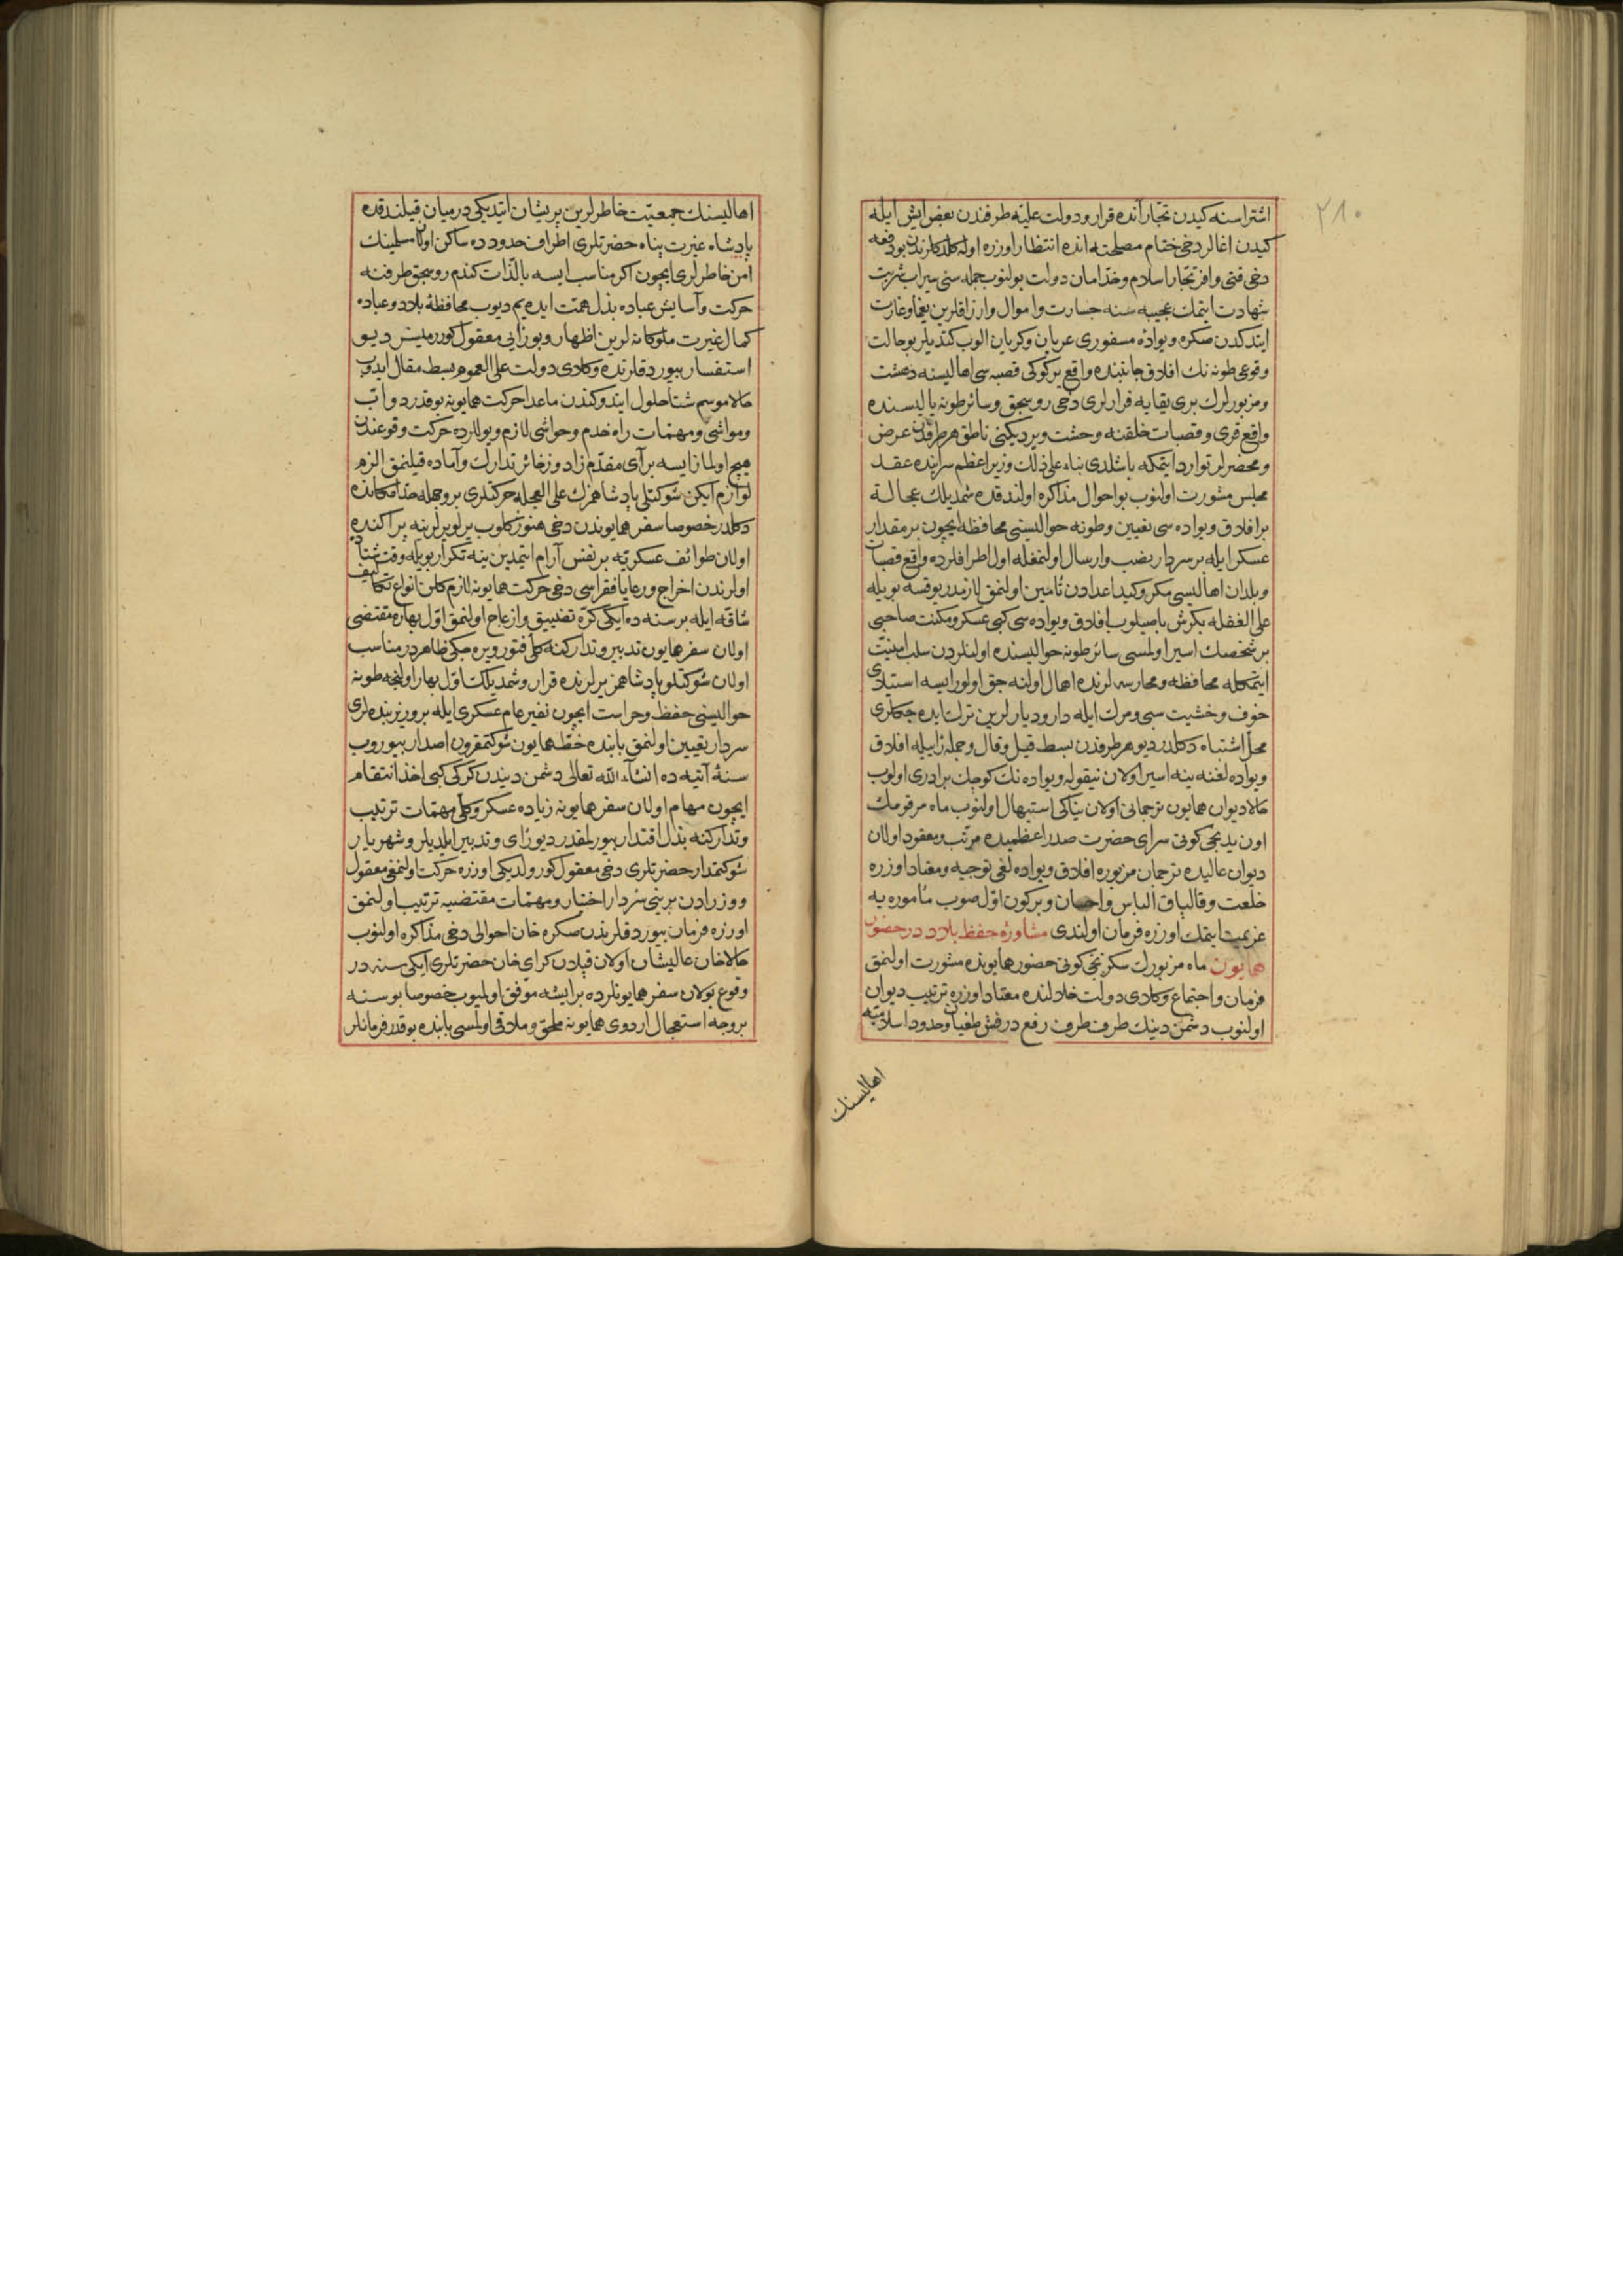 ٢١٠
اشتراسنه كيدن تجار آنده قرار و دولت عليه طرفندن بعض ايش ايله
كيدن اغالر دخى ختام مصلحته انده انتظار اوزره اولمغله كلدكلرنده بو دفعه
دخى قتى وافر تجار اسلام وخدامان دولت بولنوب جمله سنى سيراب شربت
شهادت ايتمك عجيبه سنه جسارت واموال وارزاقلرين يغما وغارت
ايتدكدن صكره ويواده مسفورى عريان وكريان الوب كتديلر بو حالت
وقوعى طونه نك افلاق جانبنده واقع يركوكى قصبه سى اهاليسنه دهشت
ومزبورلرك برى يقايه فرارلرى دخى روسجق وسائر طونه ياليسنده
واقع قرى وقصبات خلقنه وحشت ويرديكنى ناطق هر طرفدن عرض
ومحضرلر توارد ايتمكه باشلدى بناء على ذلك وزير اعظم سراينده عقد
مجلس مشورت اولنوب بو احوال مذاكره اولندقده شمديلك عجالة
بر افلاق ويواده سى تعيين وطونه حواليسنى محافظه ايچون بر مقدار
عسكر ايله بر سردار نصب وارسال اولنمغله اول اطرافلرده واقع قصبات
وبلدان اهاليسى مكر وكيد اعدادن تأمين اولنمق لازمدر يوقسه بويله
على الغفله بكرش باصيلوب افلاق ويواده سى كبى عسكر ومكنت صاحبى
بر شخصك اسير اولمسى سائر طونه حواليسنده اولنلردن سلب امنيت
ايتمكله محافظه ومحارسه لرنده اهمال اولنه جق اولور ايسه استيلاى
خوف وخشيت سبى ومرك ايله دار وديارلرين ترك ايده جكلرى
محل اشتباه دكلدر ديو هر طرفدن بسط قيل وقال وجمله رأييله افلاق
ويواده لغنه ينه اسير اولان نيقوله ويواده نك كوچك برادرى اولوب
حالا ديوان همايون ترجمانى اولان يناكى استيهال اولنوب ماه مرقومك
اون يدنجى كونى سراى حضرت صدر اعظميده مرتب ومعقود اولان
ديوان عاليده ترجمان مزبوره افلاق ويواده لغى توجيه ومعتاد اوزره
خلعت وقالپاق الباس واحسان وبر كون اول صوب مأموره يه
عزيمت ايتمك اوزره فرمان اولندى مشاورۀ حفظ بلاد در حضور
همايون ماه مزبورك سكزنجى كونى حضور همايونده مشورت اولنمق
فرمان واجتماع وكلاى دولت خلالنده معتاد اوزره ترتيب ديوان
اولنوب دشمن دينك طرف طرف رفع درفش طغيان وحدود اسلاميه
اهاليسنك
اهاليسنك جمعيت خاطرلرين پريشان ايتديكى درميان قيلندقده
پادشاه غيرت پناه حضرتلرى اطراف حدودده ساكن اولان مسلمينك
امن خاطرلرى ايچون اكر مناسب ايسه بالذات كندم روسجق طرفنه
حركت وآسايش عباده بذل همت ايده يم ديوب محافظۀ بلاد وعباده
كمال غيرت ملوكانه لرين اظهار وبو رأيى معقول كورر ميسز ديو
استفسار بيوردقلرنده وكلاى دولت على العموم بسط مقال ايدوب
حالا موسم شتا حلول ايتدوكندن ماعدا حركت همايونه بو قدر دواب
ومواشى ومهمات راه خدم وحواشى لازم ويوللرده حركت وقوعندن
هيچ اولمازايسه بر آى مقدم زاد وزخائر تدارك وآماده قيلنمق الزم
لوازم ايكن شوكتلى پادشاهمزك على العجله حركتلرى بر وجهله حد امكانده
دكلدر خصوصا سفر همايوندن دخى هنوز كلوب يرلو يرلرينه پراكنده
اولان طوائف عسكريه بر نفس آرام ايتمدين ينه تكرار بويله وقت شتاده
اولرندن اخراج ورعايا فقراسى دخى حركت همايونه لازم كلن انواع تكاليف
شاقه ايله بر سنه ده ايكى كره تضييق وازعاج اولنمق اول بهاره مقتضى
اولان سفر همايون تدبير وتداركنه كلى فتور ويره جكى ظاهردر مناسب
اولان شوكتلو پادشاهمز يرلرنده قرار وشمديلك اول بهار اولنجه طونه
حواليسنى حفظ وحراست ايچون نفير عام عسكرى ايله بر وزير بنده لرى
سردار تعيين اولنمق بابنده خط همايون شوكتمقرون اصدار بيوروب
سنۀ آتيه ده انشاء الله تعالى دشمن ديندن كركى كبى اخذ انتقام
ايچون مهام اولان سفر همايونه زياده عسكر وكلى مهمات ترتيب
وتداركنه بذل اقتدار بيورلمقدر ديو رأى وتدبير ايلديلر وشهريار
شوكتمدار حضرتلرى دخى معقول كورولديكى اوزره حركت اولنمغى معقول
ووزرادن برينى سردار اختيار ومهمات مقتضيه ترتيب اولنمق
اوزره فرمان بيوردقلرندن صكره خان احوالى دخى مذاكره اولنوب
حالا خان عاليشان اولان قپلان كراى خان حضرتلرى ايكى سنه در
وقوع بولان سفر همايونلرده بر ايشه موفق اولميوب خصوصا بو سنه
بر وجه استعجال اردوى همايونه ملحق وملاقى اولمسى بابنده بو قدر فرمانلر